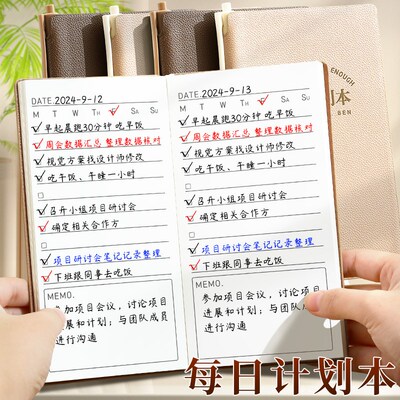 ENOUGH
划本
BEN
DATE.2024-9-12
M T W T F SA SU
早起晨跑30分钟 吃早饭
周会数据汇总 整理数据核对
视觉方案找设计师修改
吃午饭、午睡一小时
召开小组项目研讨会
确定相关合作方
项目研讨会笔记记录整理
下班跟同事去吃饭
MEMO.
参加项目会议，讨论项目
进展和计划；与团队成员
进行沟通
DATE.2024-9-13
M T W T F SA SU
早起晨跑30分钟 吃早饭
周会数据汇总 整理数据核对
视觉方案找设计师修改
吃午饭、午睡一小时
召开小组项目研讨会
确定相关合作方
项目研讨会笔记记录整理
下班跟同事去吃饭
MEMO.
参加项目会议，讨论项目
进展和计划；与团队成员
进行沟通
每日计划本